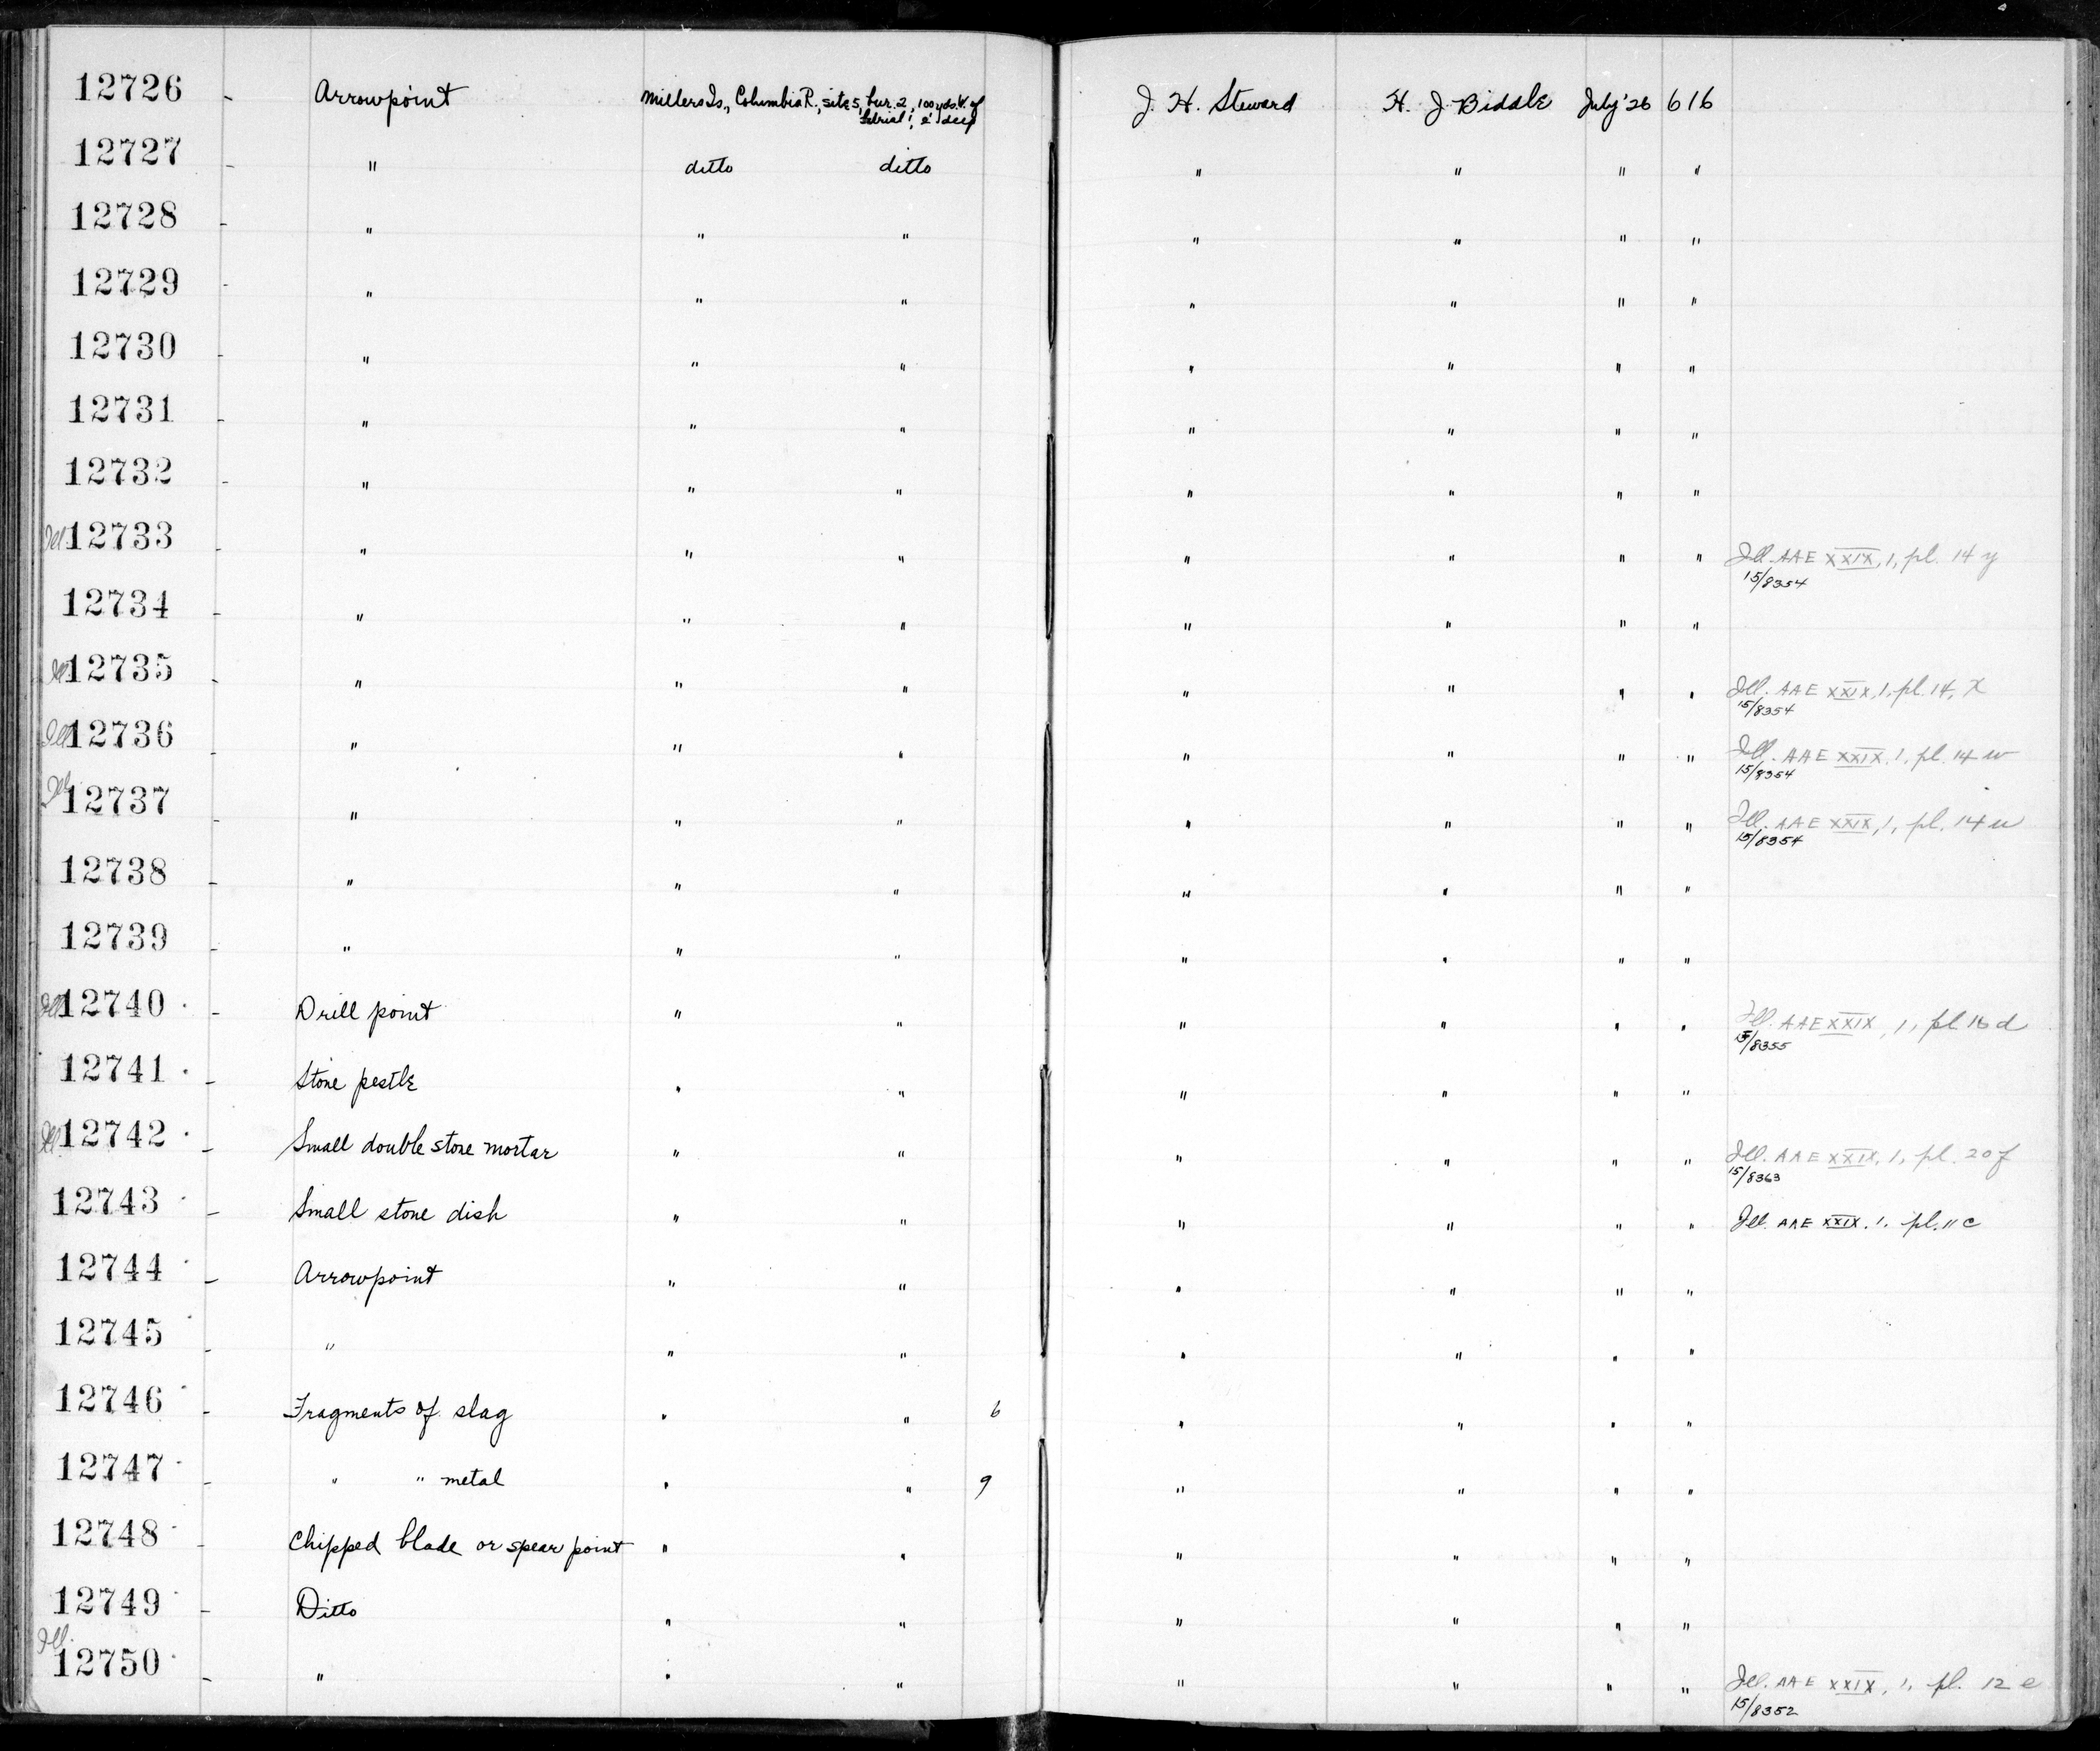 12726 - Arrowpoint Millers Is., Columbia R., site 5, bur. 2, 100 yds. W. of J. H. Steward H. J. Biddle July '26 616
burial 1, 2' deep
12727 - " ditto ditto " " " "
12728 - " " " " " " "
12729 - " " " " " " "
12730 - " " " " " " "
12731 - " " " " " " "
12732 - " " " " " " "
Ill. 12733 - " " " " " " " Ill. AAE XXIX, 1, pl. 14 y
15/8354
12734 - " " " " " " "
Ill. 12735 - " " " " " " " Ill. AAE XXIX, 1, pl. 14, x
15/8354
Ill. 12736 - " " " " " " " Ill. AAE XXIX, 1, pl. 14 w
15/8354
Ill. 12737 - " " " " " " " Ill. AAE XXIX, 1, pl. 14 u
15/8354
12738 - " " " " " " "
12739 - " " " " " " "
Ill. 12740 - Drill point " " " " " " Ill. AAE XXIX, 1, pl. 15 d
15/8355
12741 - Stone pestle " " " " " "
Ill. 12742 - Small double stone mortar " " " " " " Ill. AAE XXIX, 1, pl. 20 f
15/8363
12743 - Small stone dish " " " " " " Ill. AAE XXIX, 1. pl. 11 c
12744 - Arrowpoint " " " " " "
12745 - " " " " " " "
12746 - Fragments of slag " " 6 " " " "
12747 - " " metal " " 9 " " " "
12748 - Chipped blade or spear point " " " " " "
12749 - Ditto " " " " " "
Ill. 12750 - " " " " " " " Ill. AAE XXIX, 1, pl. 12 e
15/8352